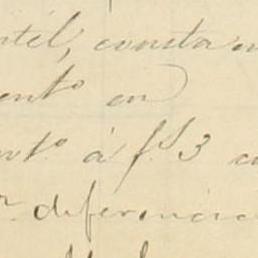 ntél, consta
ento en
nto à fs 3
diferencia